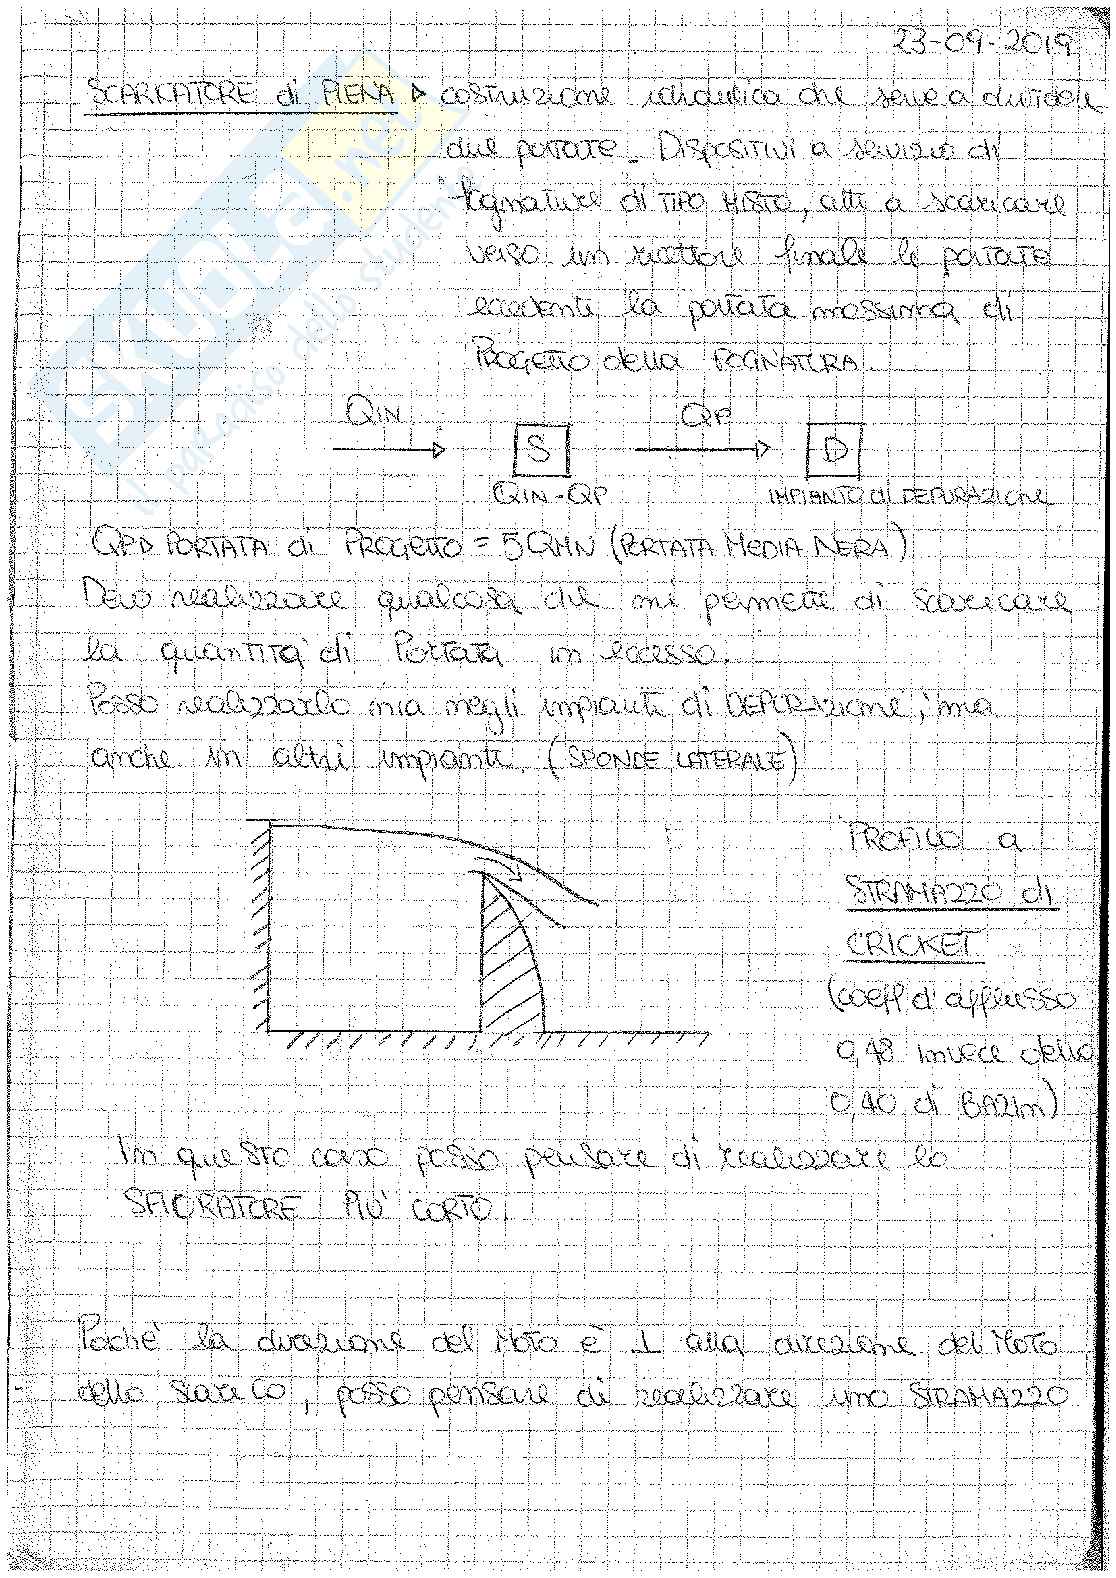 23-09-2019
SCARICATORE di PIENA ▷ costruzione idraulica che serve a dividere
due portate. DISPOSITIVI a servizio di
fognature di TIPO MISTO, atti a scaricare
verso un ricettore finale le portate
eccedenti la portata massima di
PROGETTO della FOGNATURA.
QIN
QP
S
D
QIN-QP
IMPIANTO di DEPURAZIONE
QP ▷ PORTATA di PROGETTO = 5QMN (PORTATA MEDIA NERA)
Devo realizzare qualcosa che mi permette di scaricare
la quantità di Portata in eccesso.
Posso realizzarlo sia negli impianti di DEPURAZIONE, ma
anche in altri impianti. (SPONDE LATERALE)
PROFILO a
STRAMAZZO di
CRICKET
(coeff d'afflusso
0,48 invece dello
0,40 di BAZIN)
In questo caso posso pensare di realizzare lo
SFIORATORE PIÙ CORTO.
Poiché la direzione del MOTO è ⊥ alla direzione del MOTO
dello scarico, posso pensare di realizzare uno STRAMAZZO